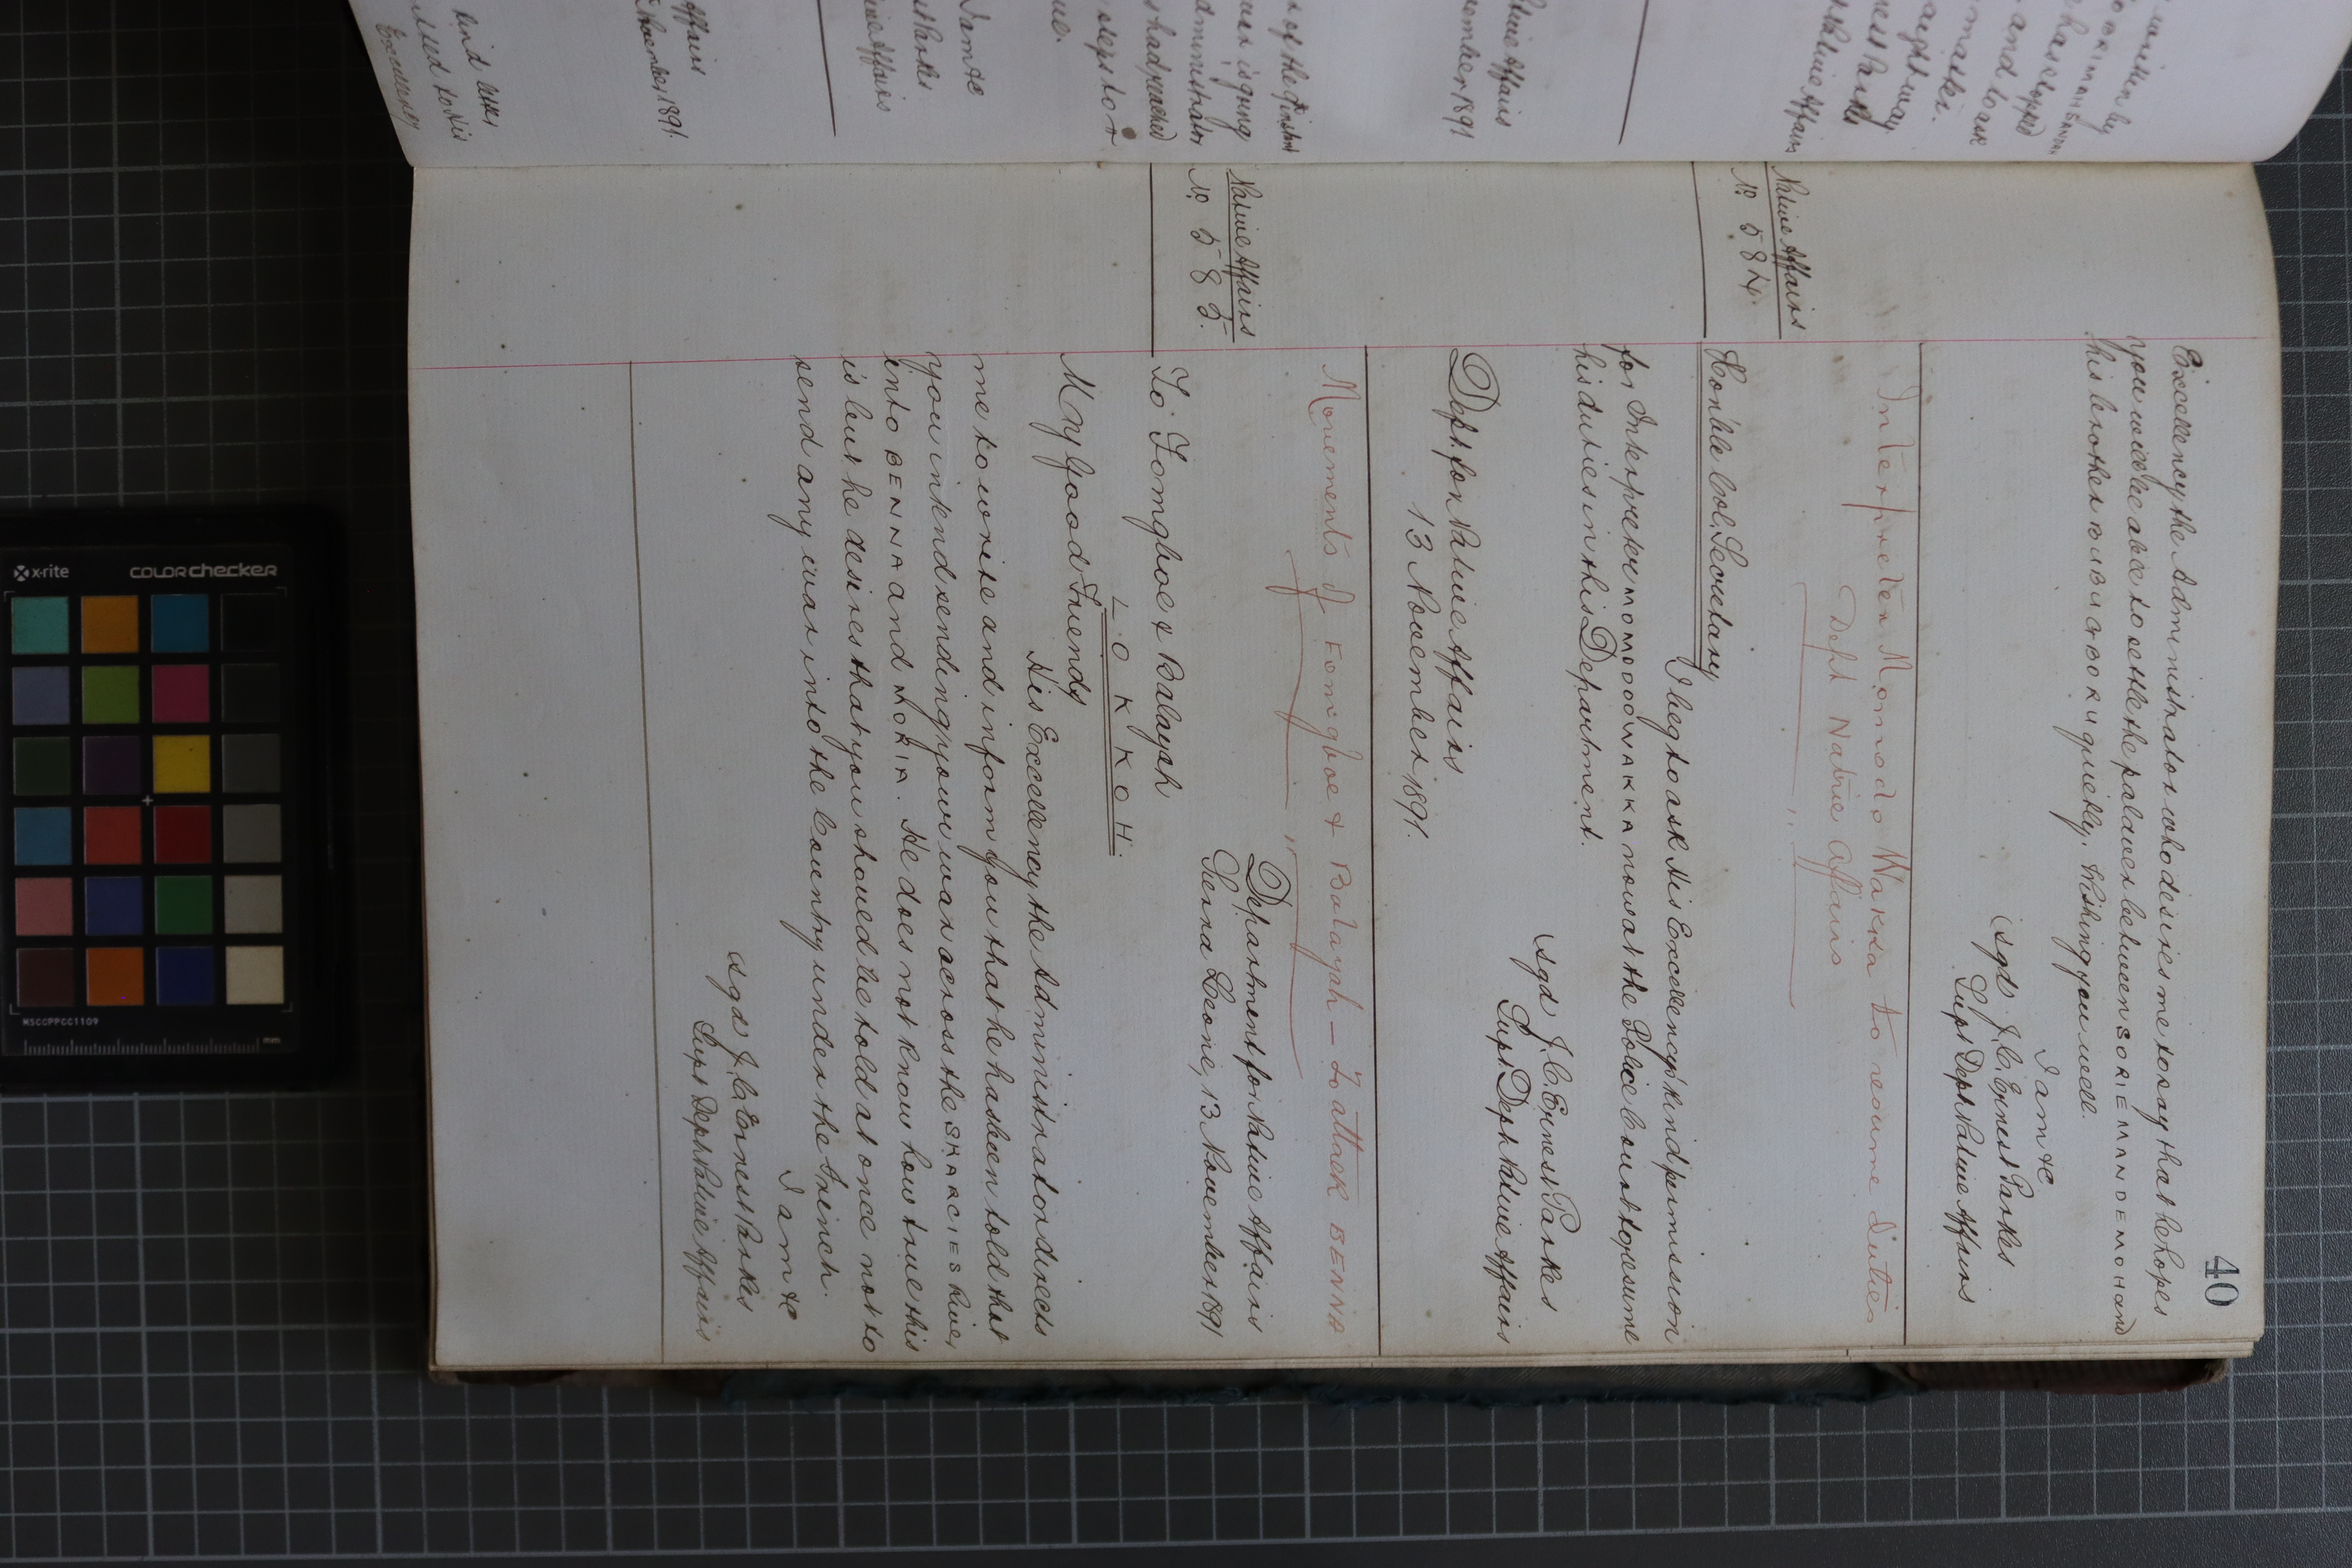 40
Excellency the Administrator who desires me to say that he hopes
you will be able to settle the palaver between SORIE MANDEMOH and
his brother quickly. Wishing you well.
I am &c
(sgd) J. C. Ernest Parkes
Supt Dept Native Affairs
Interpreter Momodo Wakka to resume duties
Dept Native Affairs
Native Affairs
No. 584.
Hon'ble Col. Secretary
I beg to ask His Excellency's kind permission
for Interpreter MOMODO WAKKA now at the Police Court to resume
his duties in this Department.
(sgd) J. C. Ernest Parkes
Supt Dept Native Affairs
Dept. for Native Affairs
13 November 1891.
Movements of Fomgboe & Balayah — to attack BENNA
Native Affairs
No. 585.
Department for Native Affairs
Sierra Leone, 13 November 1891
To Fomgboe & Balayah
LOKKOH.
My Good Friends
His Excellency the Administrator directs
me to write and inform you that he has been told that
you intend sending your war across the SKARCIES River
into BENNA and MORIA. He does not know how true this
is but he desires that you should be told at once not to
send any war into the Country under the French.
I am &c
(sgd) J. C. Ernest Parkes
Supt Dept Native Affairs
written by
has eloped
and to ask
Native Affairs
November 1891
of the District
is going
had reached
steps to
I am &c
Parkes
Native Affairs
Affairs
November, 1891.
kind letter
Excellency
x-rite
colorchecker
MSCCPPCC1109
mm